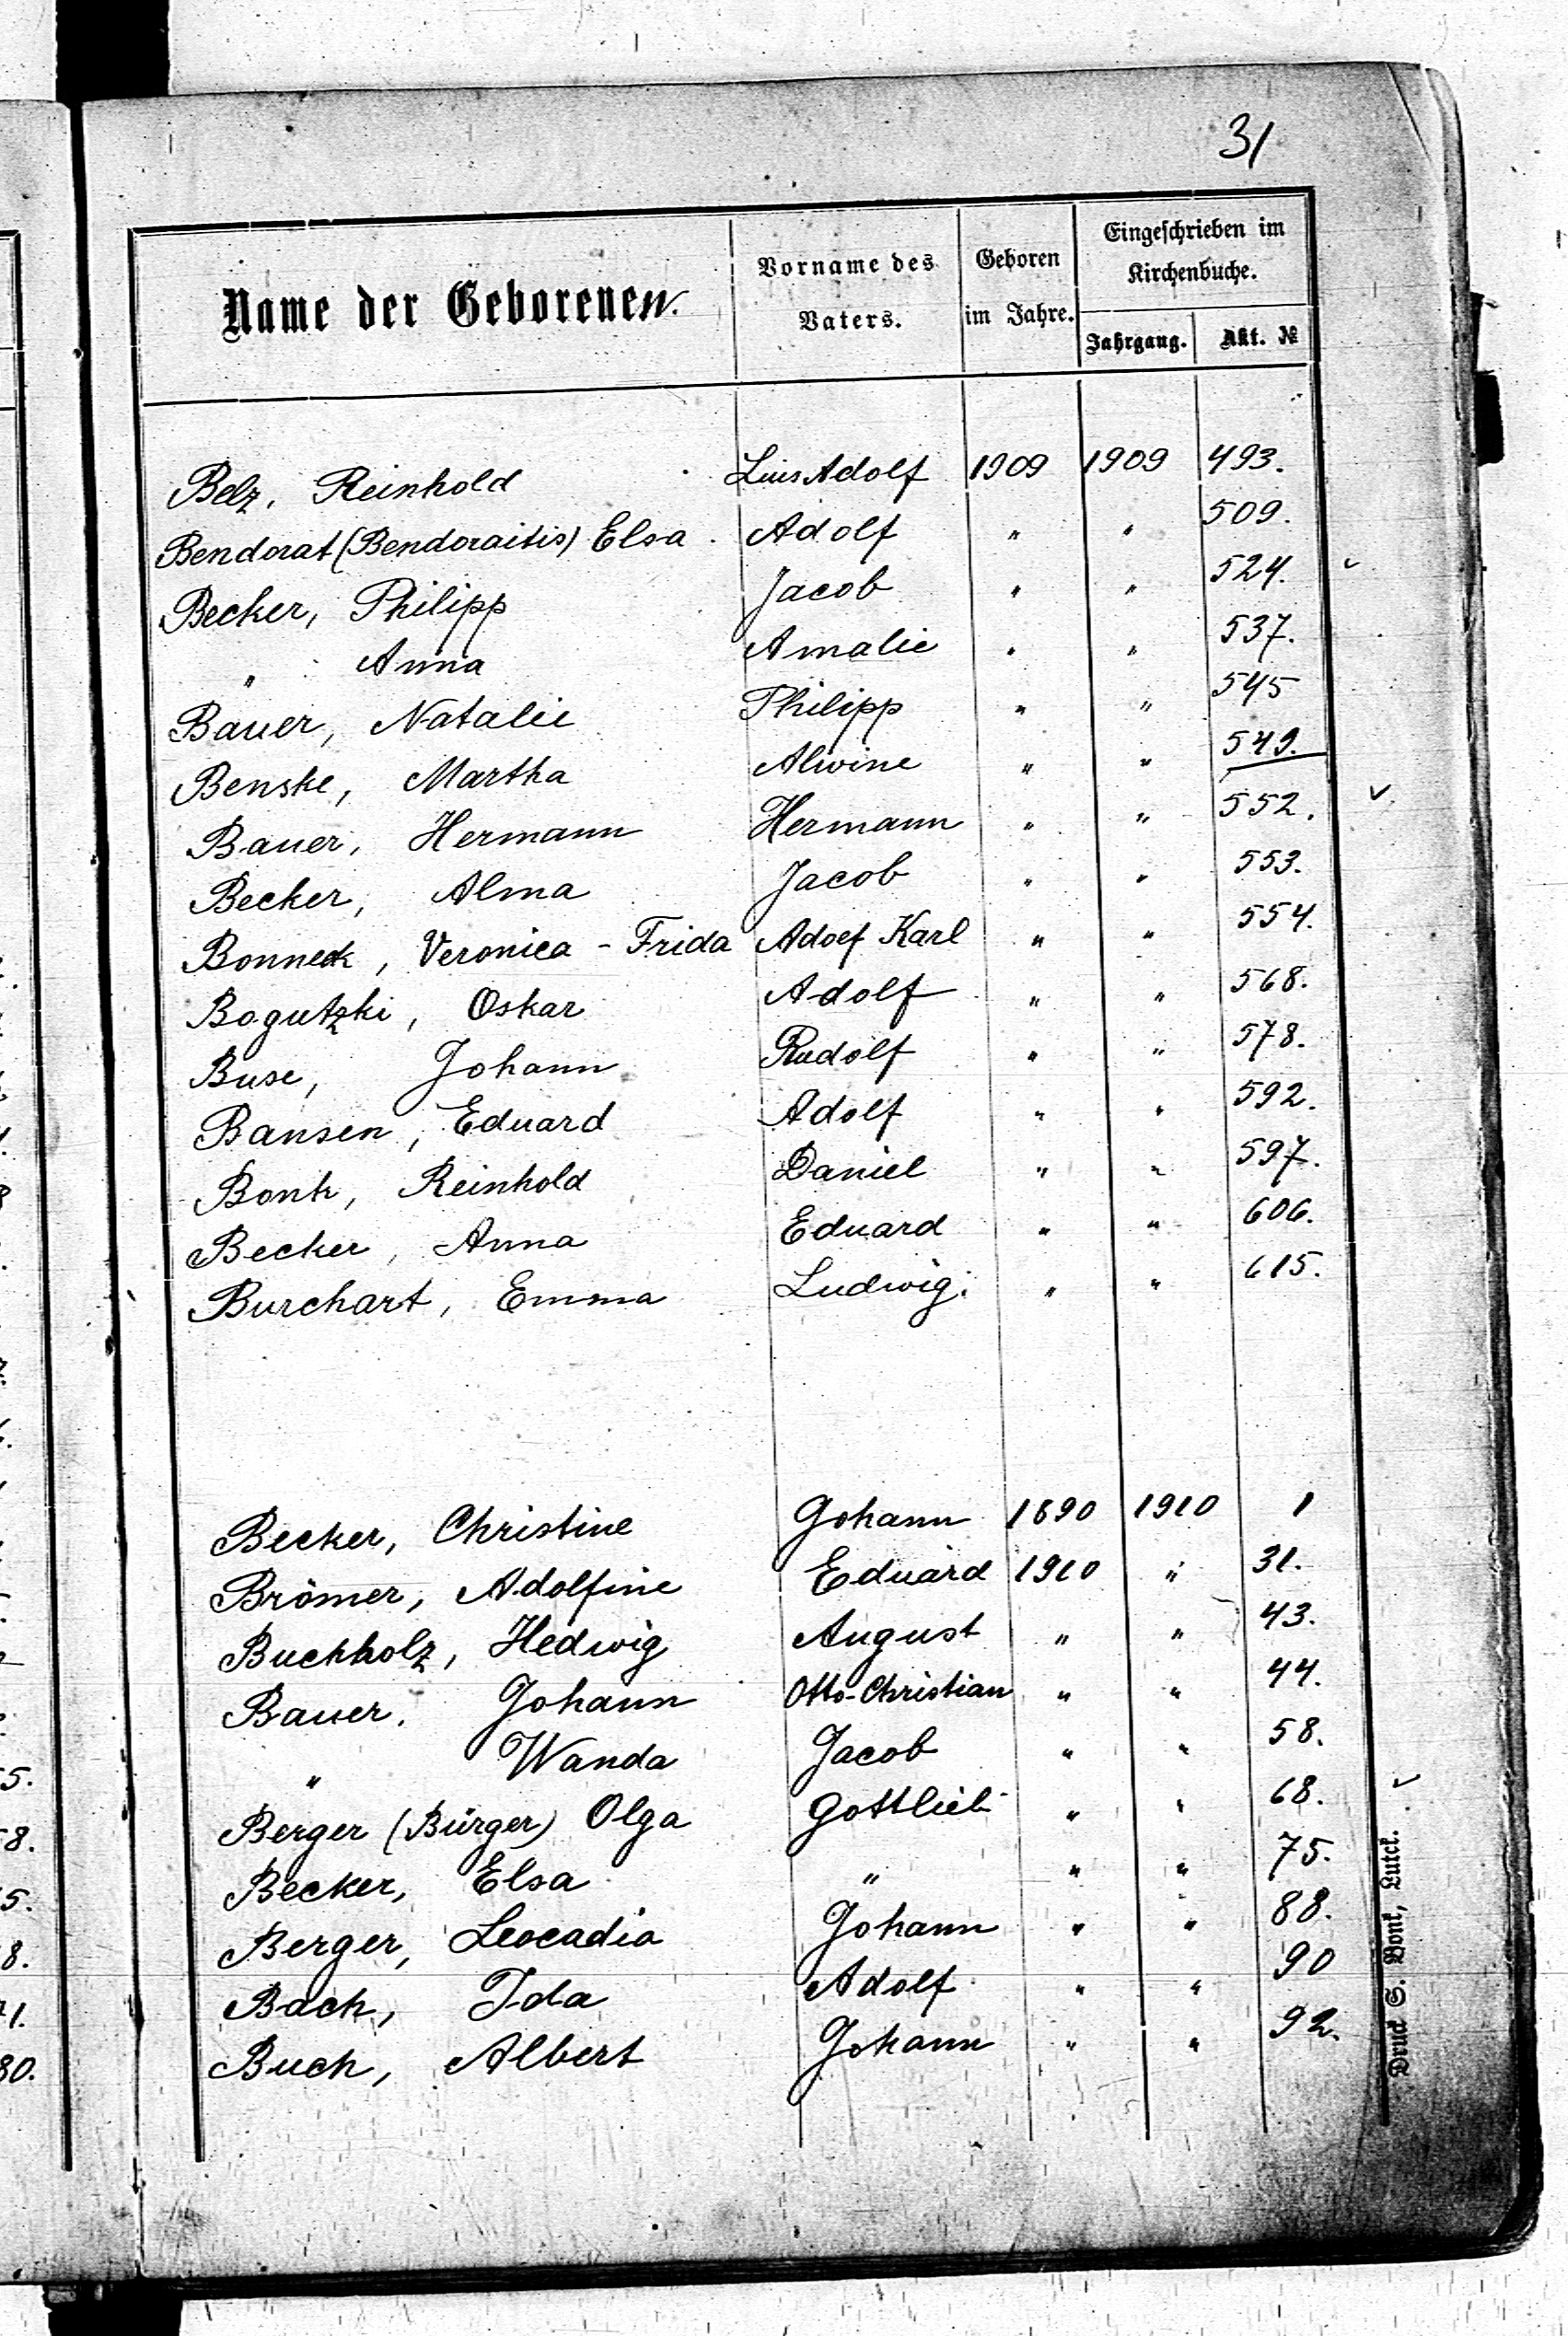 31
Name der Geborenen.
Vorname des Vaters.
Geboren im Jahre.
Eingeschrieben im Kirchenbuche.
Jahrgang. Akt. №
Belz, Reinhold Luis Adolf 1909 1909 493.
Bendorat (Bendoraitis) Elsa . Adolf " " 509.
Becker, Philipp Jacob " " 524. ✓
" Anna Amalie " " 537.
Bauer, Natalie Philipp " " 545
Benske, Martha Alwine " " 549.
Bauer, Hermann Hermann " " 552. ✓
Becker, Alma Jacob " " 553.
Bonneck, Veronica - Frida Adolf Karl " " 554.
Bogutzki, Oskar Adolf " " 568.
Buse, Johann Rudolf " " 578.
Bansen, Eduard Adolf " " 592.
Bonk, Reinhold Daniel " " 597.
Becker, Anna Eduard " " 606.
Burchart, Emma Ludwig. " " 615.
Becker, Christine Johann 1890 1910 1
Brömer, Adolfine Eduard 1910 " 31.
Buchholz, Hedwig August " " 43.
Bauer, Johann Otto-Christian " " 44.
" Wanda Jacob " " 58.
Berger (Bürger) Olga Gottlieb " " 68. ✓
Becker, Elsa " " " 75.
Berger, Leocadia Johann " " 88.
Bach, Ida Adolf " " 90
Buch, Albert Johann " " 92.
Druck S. Bonk, Lutck.
5.
8.
5.
8.
1.
80.